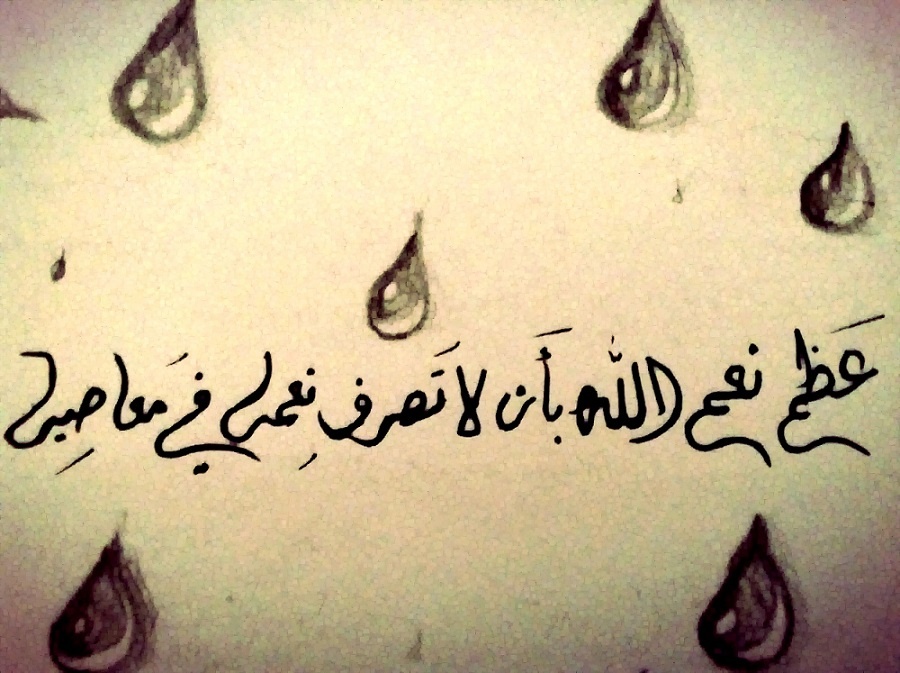 عَظِّم نعم الله بأَن لا تَصرف نِعمه في مَعاصِيه